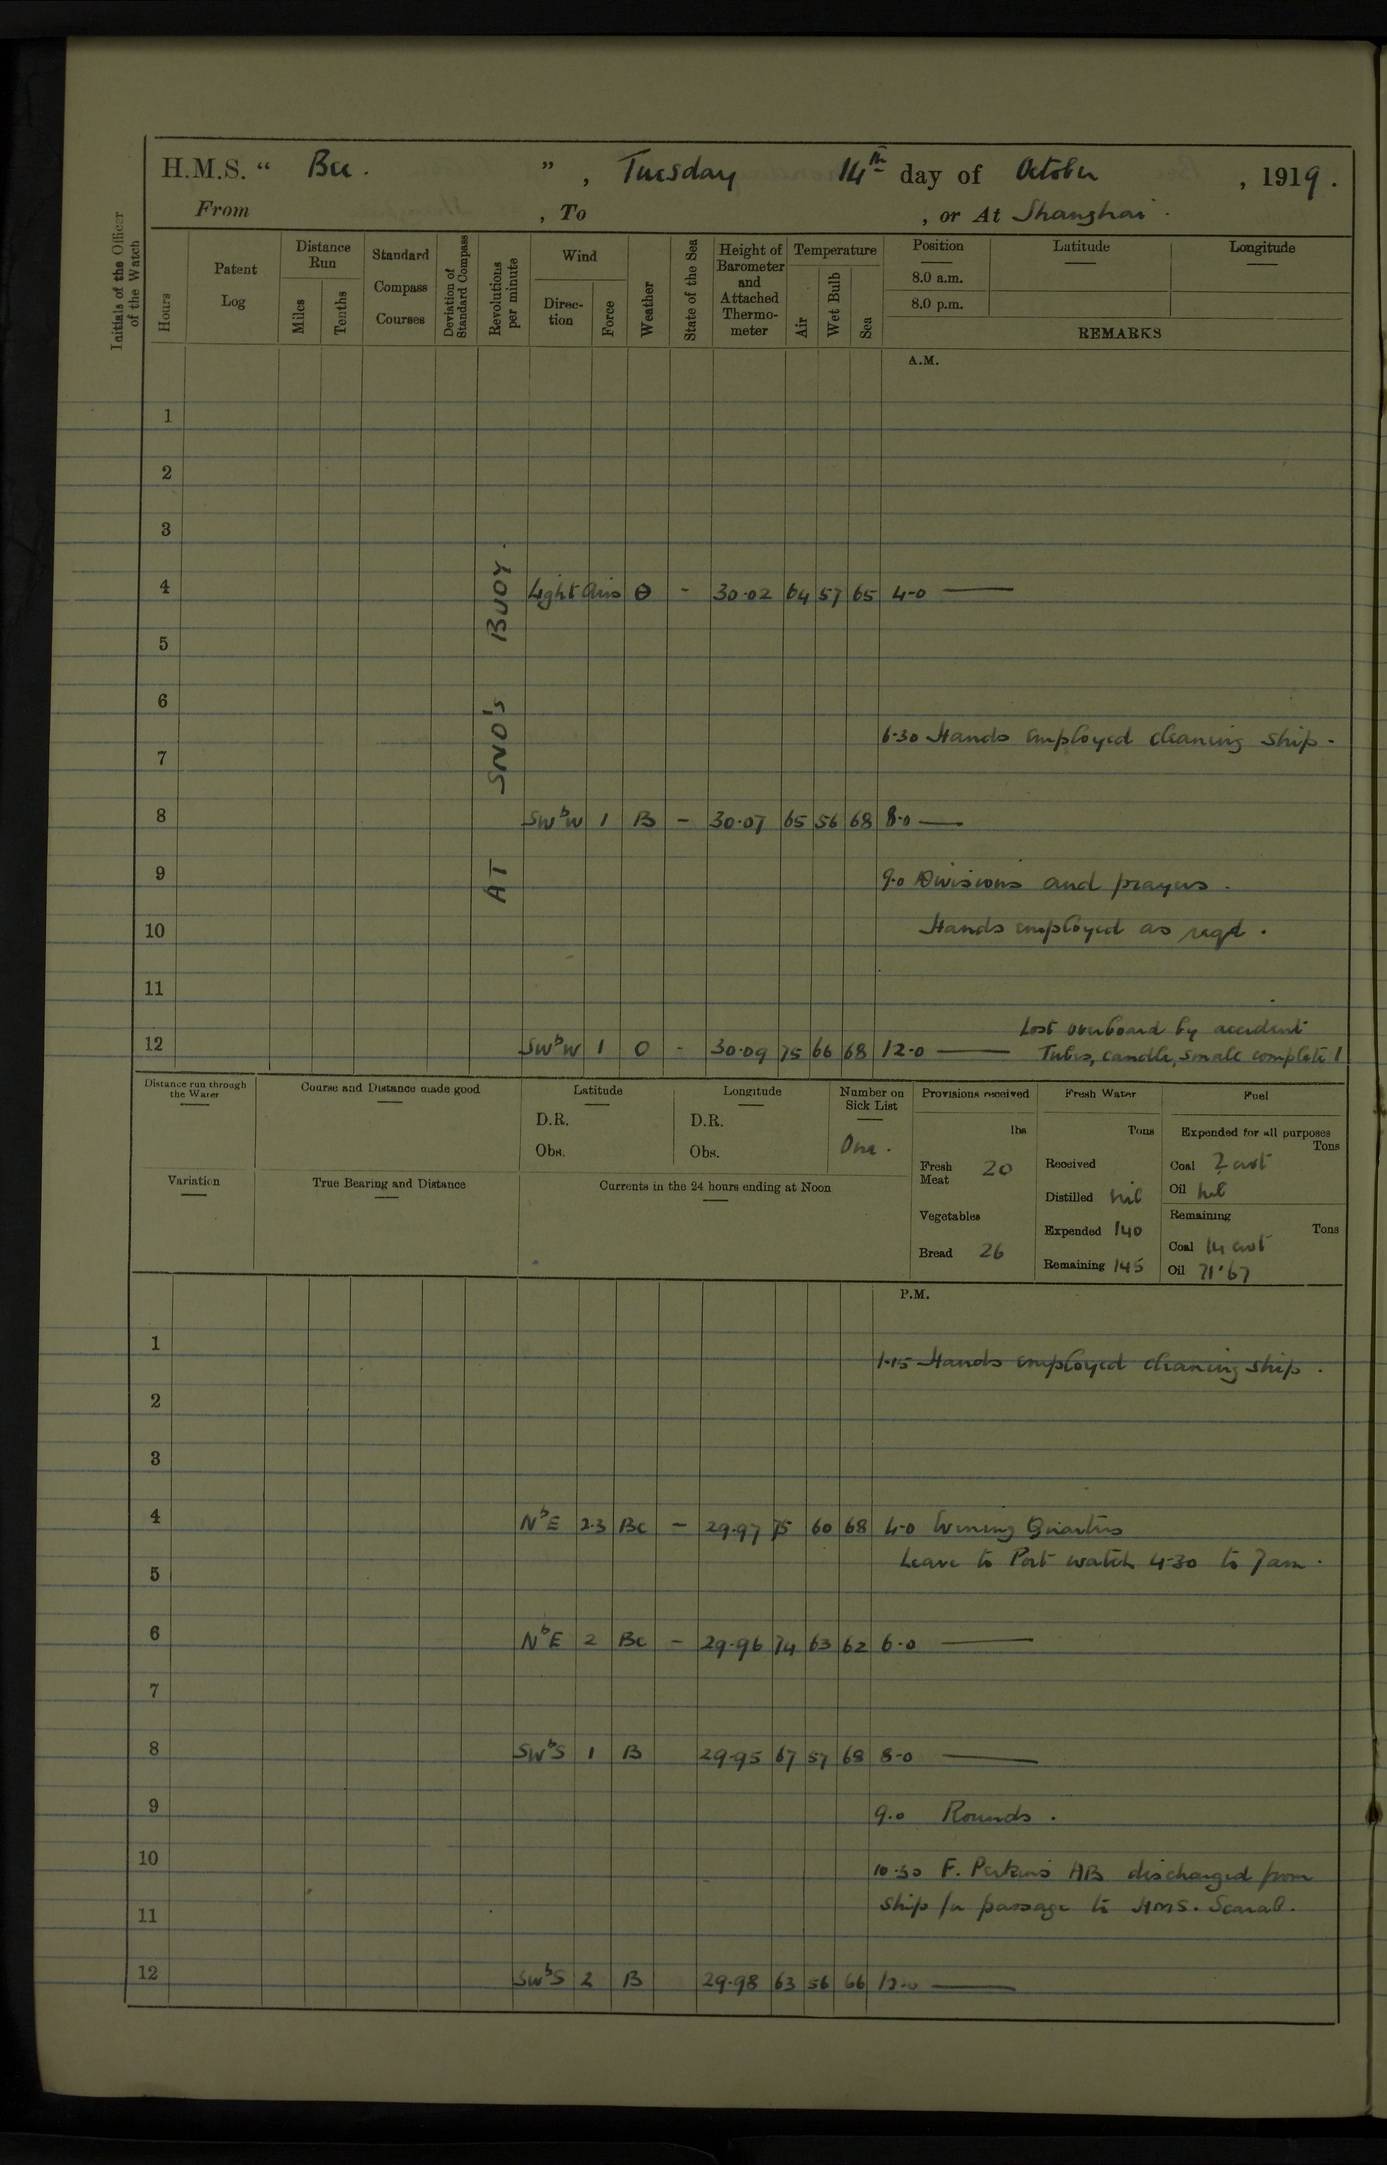 H.M.S. “ Bee. ” , Tuesday 14th day of October , 1919.
From , To , or At Shanghai.
Initials of the Officer of the Watch
Hours
Patent Log
Distance Run
Miles
Tenths
Standard Compass Courses
Deviation of Standard Compass
Revolutions per minute
Wind
Direction
Force
Weather
State of the Sea
Height of Barometer and Attached Thermometer
Temperature
Air
Wet Bulb
Sea
Position
8.0 a.m.
8.0 p.m.
Latitude
Longitude
REMARKS
A.M.
AT SNO's BUOY.
1
2
3
4 Light airs O - 30.02 64 57 65 4-0 —
5
6
6-30 Hands employed cleaning ship-
7
8 SWbW 1 B - 30.07 65 56 68 8.0 —
9 9.0 Divisions and prayers.
10 Hands employed as reqd.
11
Lost overboard by accident
12 SWbW 1 O - 30.09 75 66 68 12-0 — Tubes, candle, small complete 1
Distance run through the Water
Course and Distance made good
Latitude
D.R.
Obs.
Longitude
D.R.
Obs.
Number on Sick List
One.
Variation
True Bearing and Distance
Currents in the 24 hours ending at Noon
Provisions received
lbs
Fresh Meat 20
Vegetables
Bread 26
Fresh Water
Tons
Received
Distilled nil
Expended 140
Remaining 145
Fuel
Expended for all purposes
Tons
Coal 2 cwt
Oil nil
Remaining
Tons
Coal 14 cwt
Oil 71.67
P.M.
1 1.15 Hands employed cleaning ship.
2
3
4 NbE 2.3 Bc - 29.97 75 60 68 4-0 Evening Quarters
Leave to Port watch 4-30 to 7am.
5
6 NbE 2 Bc - 29.96 74 63 62 6.0 —
7
8 SWbS 1 B 29.95 67 57 68 8-0 —
9 9.0 Rounds.
10 10.30 F. Perkins AB discharged from
11 ship for passage to HMS. Scarab.
12 SWbS 2 B 29.98 63 56 66 12.0 —